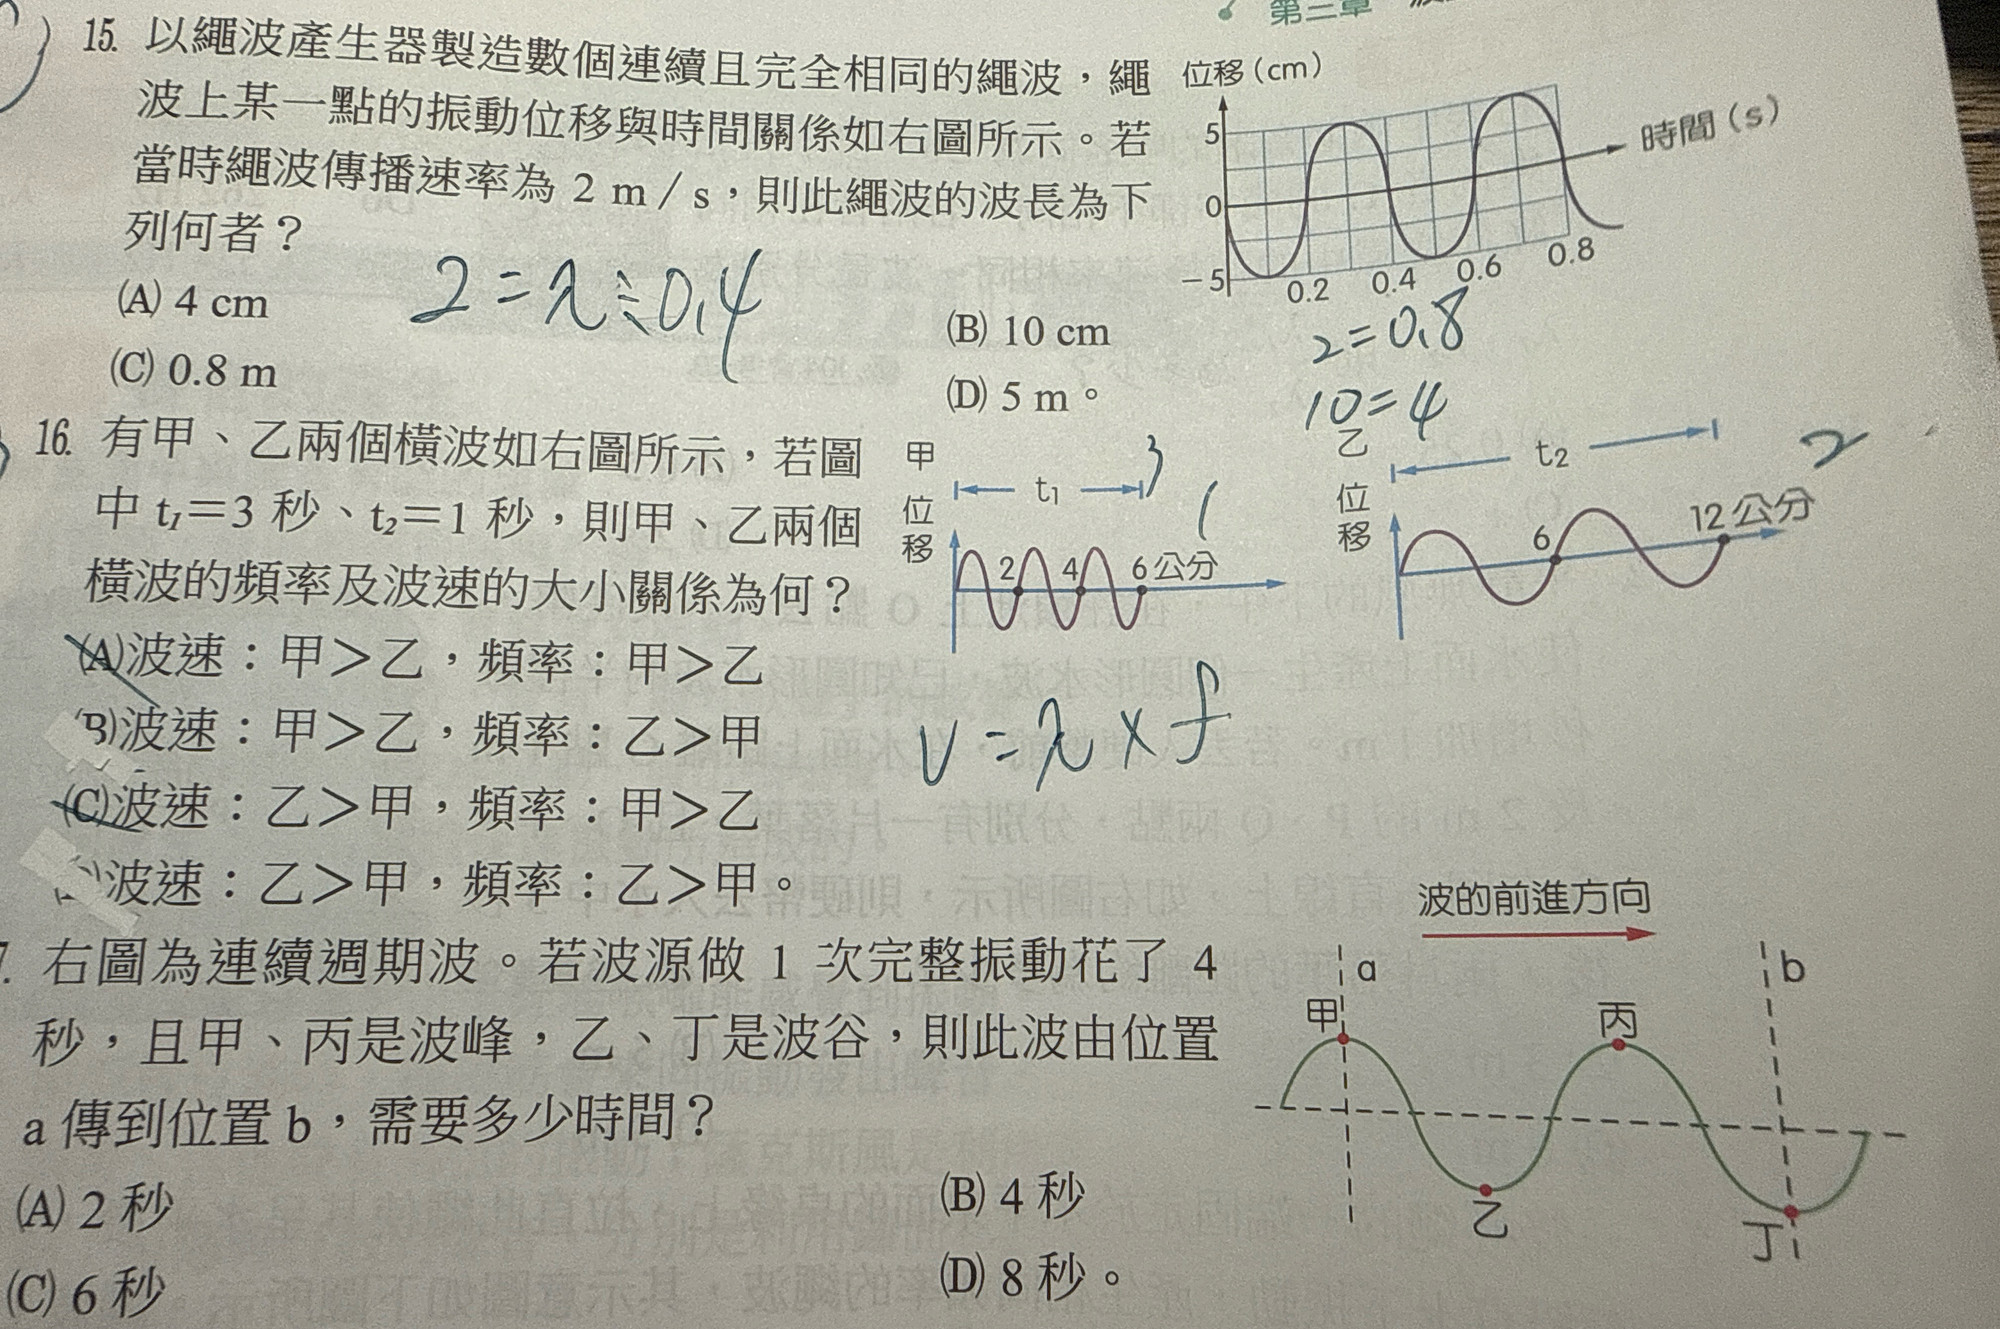 第三章
15. 以繩波產生器製造數個連續且完全相同的繩波，繩
波上某一點的振動位移與時間關係如右圖所示。若
當時繩波傳播速率為 2 m／s，則此繩波的波長為下
列何者？
(A) 4 cm
(B) 10 cm
(C) 0.8 m
(D) 5 m。
位移(cm)
5
0
－5
0.2
0.4
0.6
0.8
時間(s)
2=λ÷0.4
2=0.8
10=4
16. 有甲、乙兩個橫波如右圖所示，若圖
中 t₁＝3 秒、t₂＝1 秒，則甲、乙兩個
橫波的頻率及波速的大小關係為何？
(A)波速：甲＞乙，頻率：甲＞乙
(B)波速：甲＞乙，頻率：乙＞甲
(C)波速：乙＞甲，頻率：甲＞乙
波速：乙＞甲，頻率：乙＞甲。
甲
位移
t₁
3
1
2
4
6公分
乙
位移
t₂
2
6
12公分
v=λ×f
7. 右圖為連續週期波。若波源做 1 次完整振動花了 4
秒，且甲、丙是波峰，乙、丁是波谷，則此波由位置
a 傳到位置 b，需要多少時間？
(A) 2 秒
(B) 4 秒
(C) 6 秒
(D) 8 秒。
波的前進方向
a
b
甲
丙
乙
丁